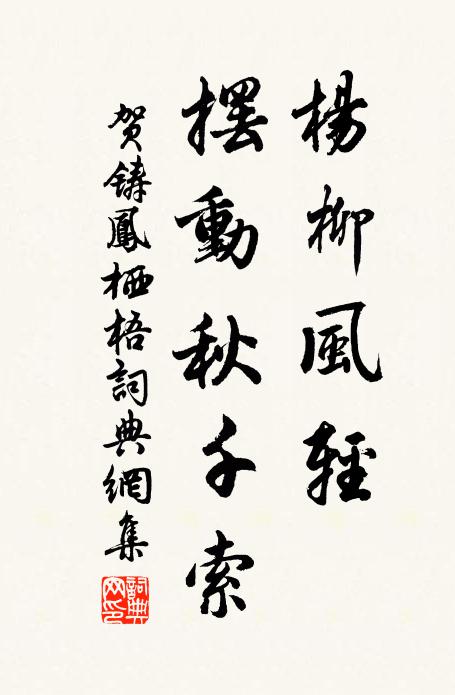 楊柳風輕
擺動秋千索
賀鑄鳳栖梧詞典網集
詞典网印